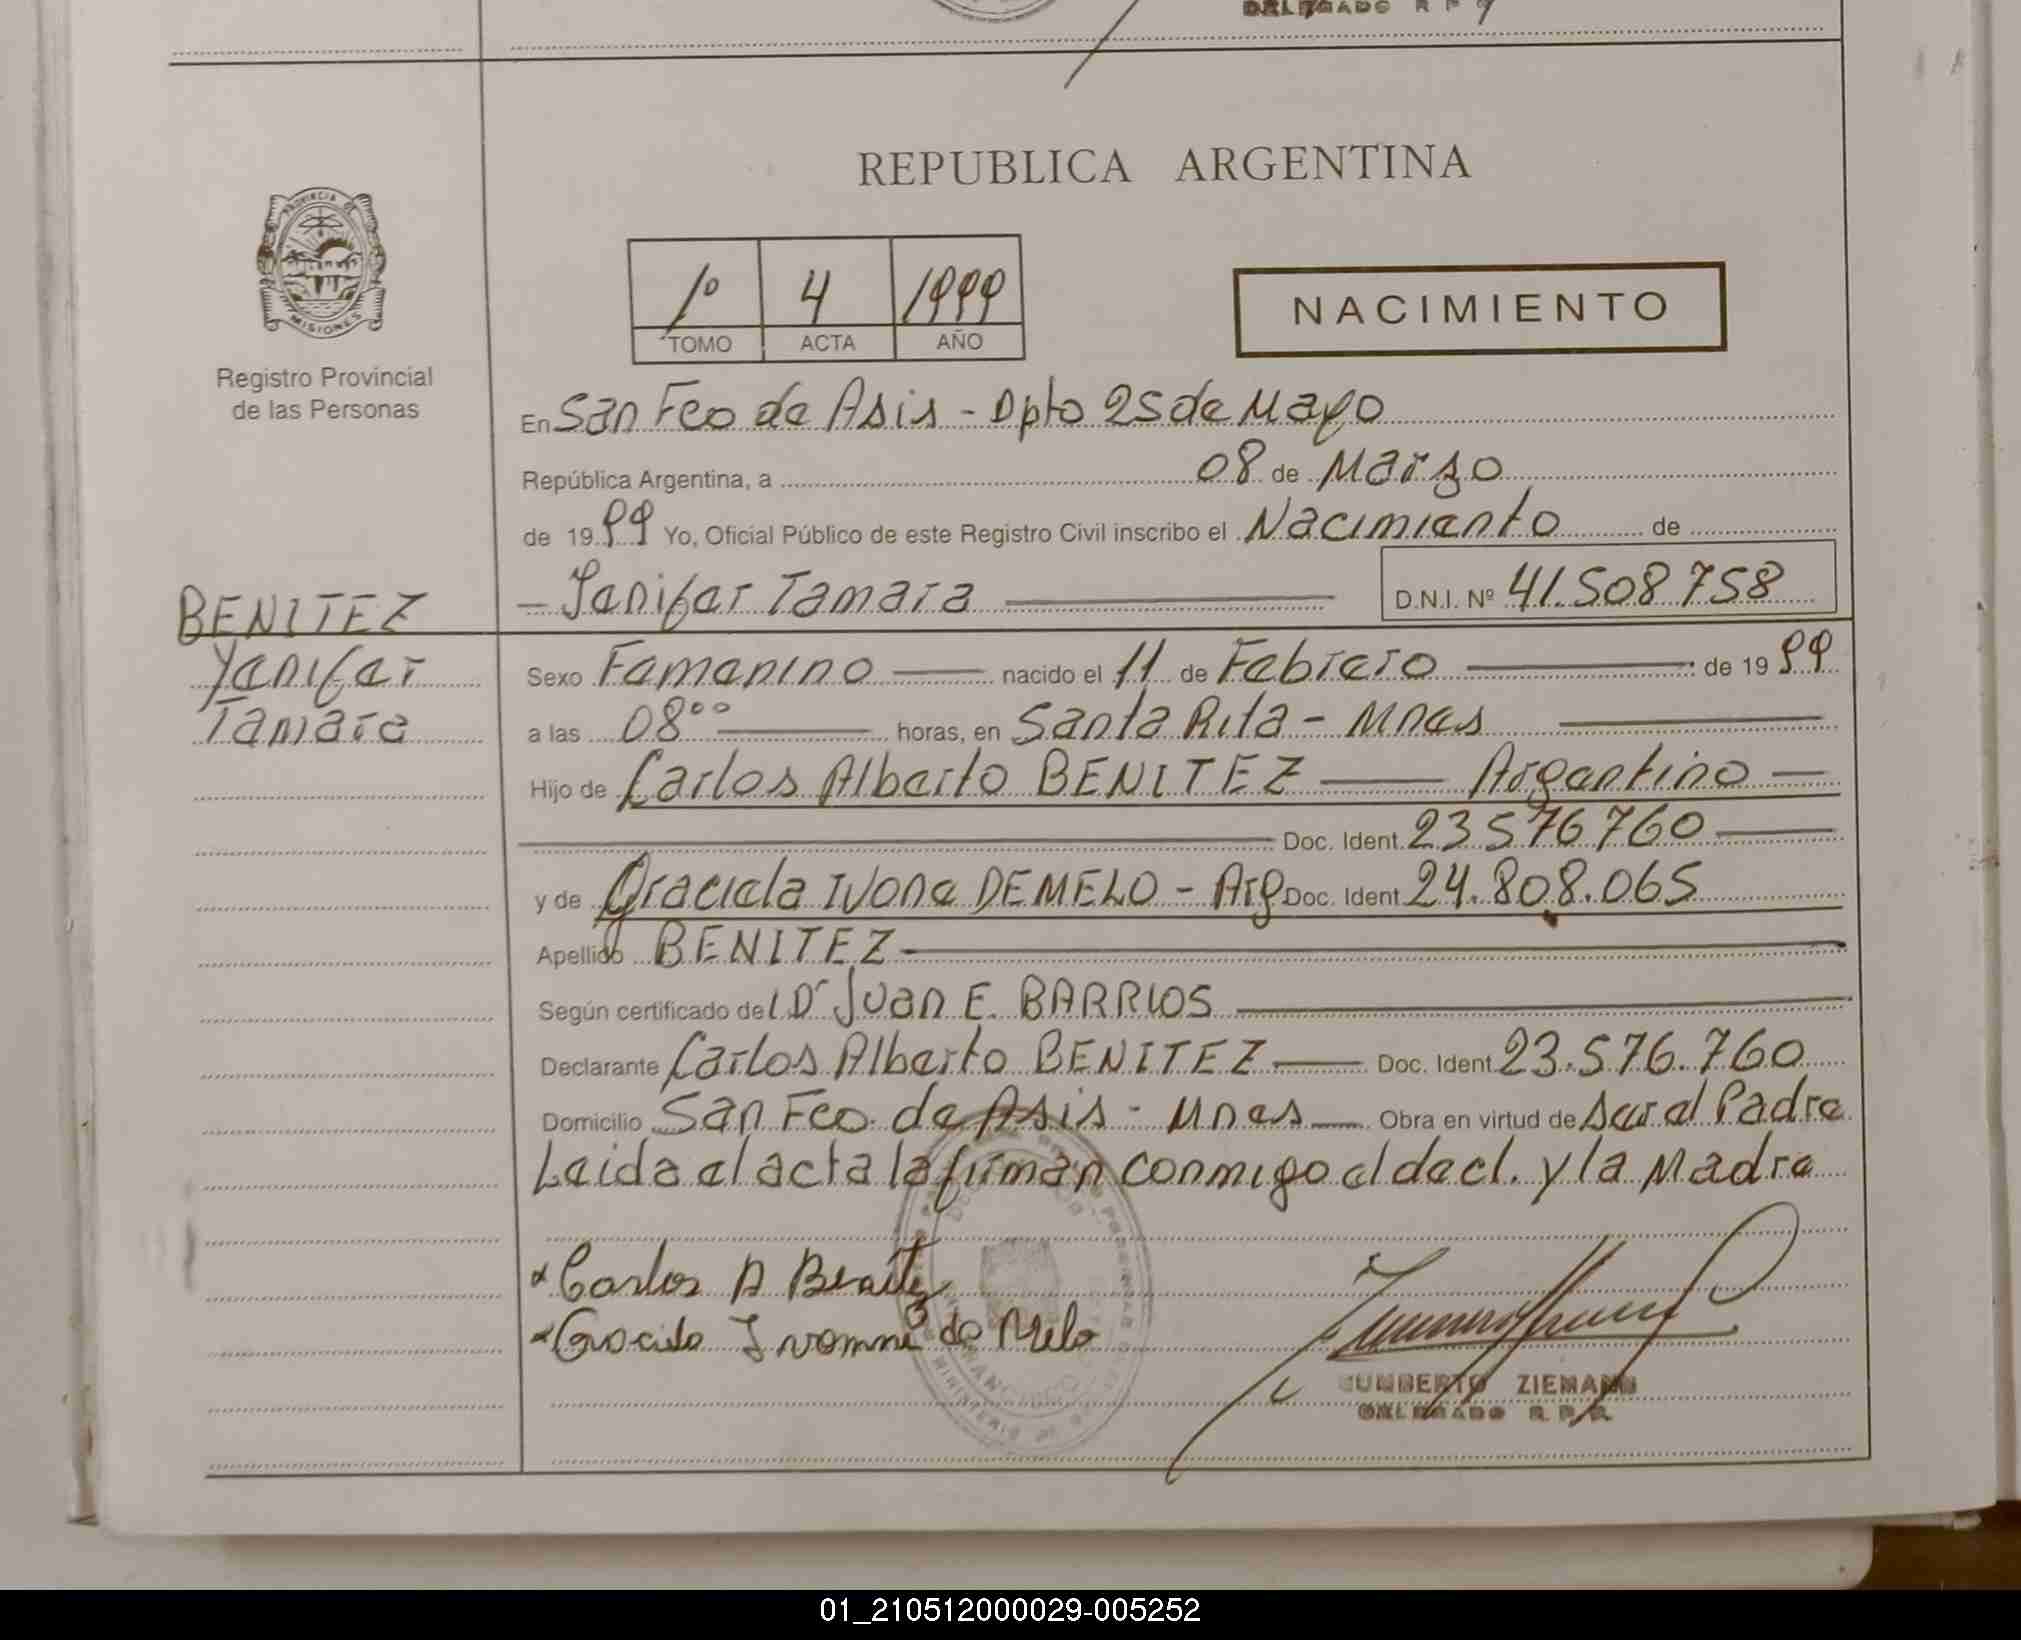 DELEGADO R P
REPUBLICA ARGENTINA
PROVINCIA DE
MISIONES
Registro Provincial
de las Personas
1º 4 1999
TOMO ACTA AÑO
NACIMIENTO
En San Fco de Asis - Dpto 25 de Mayo
República Argentina, a 08 de Marzo
de 1999 Yo, Oficial Público de este Registro Civil inscribo el Nacimiento de
- Yenifer Tamara D.N.I. Nº 41.508.758
BENITEZ
Yenifer
Tamara
Sexo Femenino nacido el 11 de Febrero de 1999
a las 08⁰⁰ horas, en Santa Rita - Mnes
Hijo de Carlos Alberto BENITEZ Argentino
Doc. Ident. 23.576.760
y de Graciela Ivone DEMELO - Arg Doc. Ident. 24.808.065
Apellido BENITEZ
Según certificado del Dr Juan E. BARRIOS
Declarante Carlos Alberto BENITEZ Doc. Ident. 23.576.760
Domicilio San Fco. de Asis - Mnes Obra en virtud de Ser el Padre
Leida el acta la firman conmigo el decl. y la Madre
Carlos A Benitez
Graciela Ivonne de Melo
HUMBERTO ZIEMANN
DELEGADO R. P. P.
01_210512000029-005252